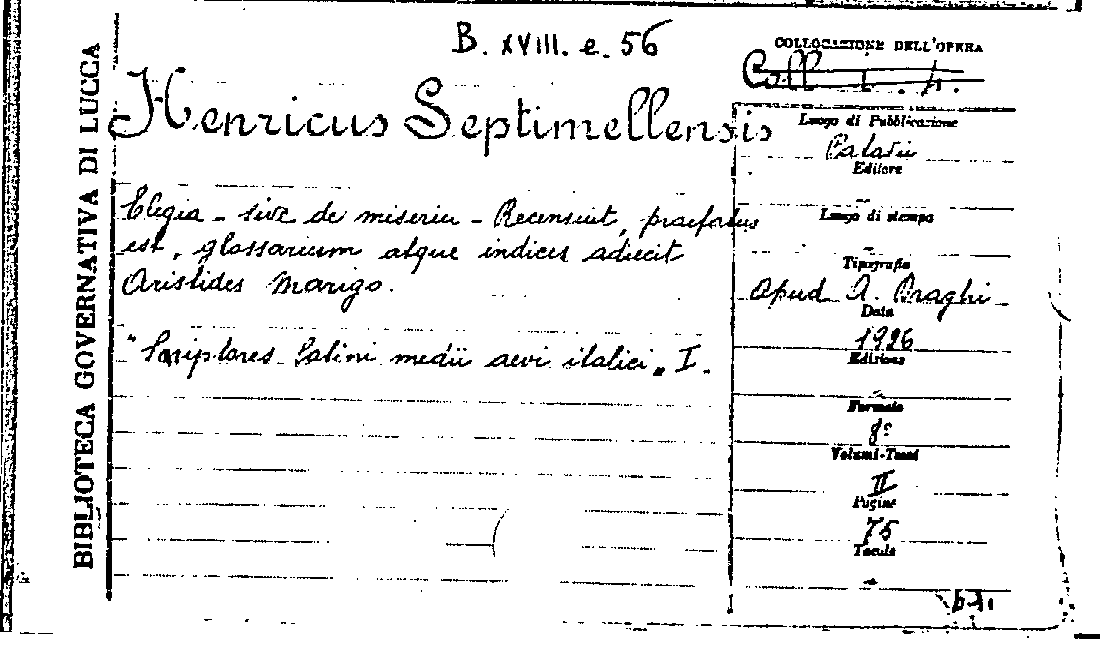 B. XVIII. e. 56
BIBLIOTECA GOVERNATIVA DI LUCCA
Henricus Septimellensis
Elegia - sive de miseria - Recensuit, praefatus
est, glossarium atque indices adiecit
Aristides Marigo.
"Scriptores Latini medii aevi italici" I.
COLLOCAZIONE DELL'OPERA
Coll
Luogo di Pubblicazione
Patavii
Editore
Luogo di stampa
Tipografia
Apud A. Draghi
Data
1926
Edizione
Formato
8º
Volumi-Tomi
II
Pagine
75
Tavole